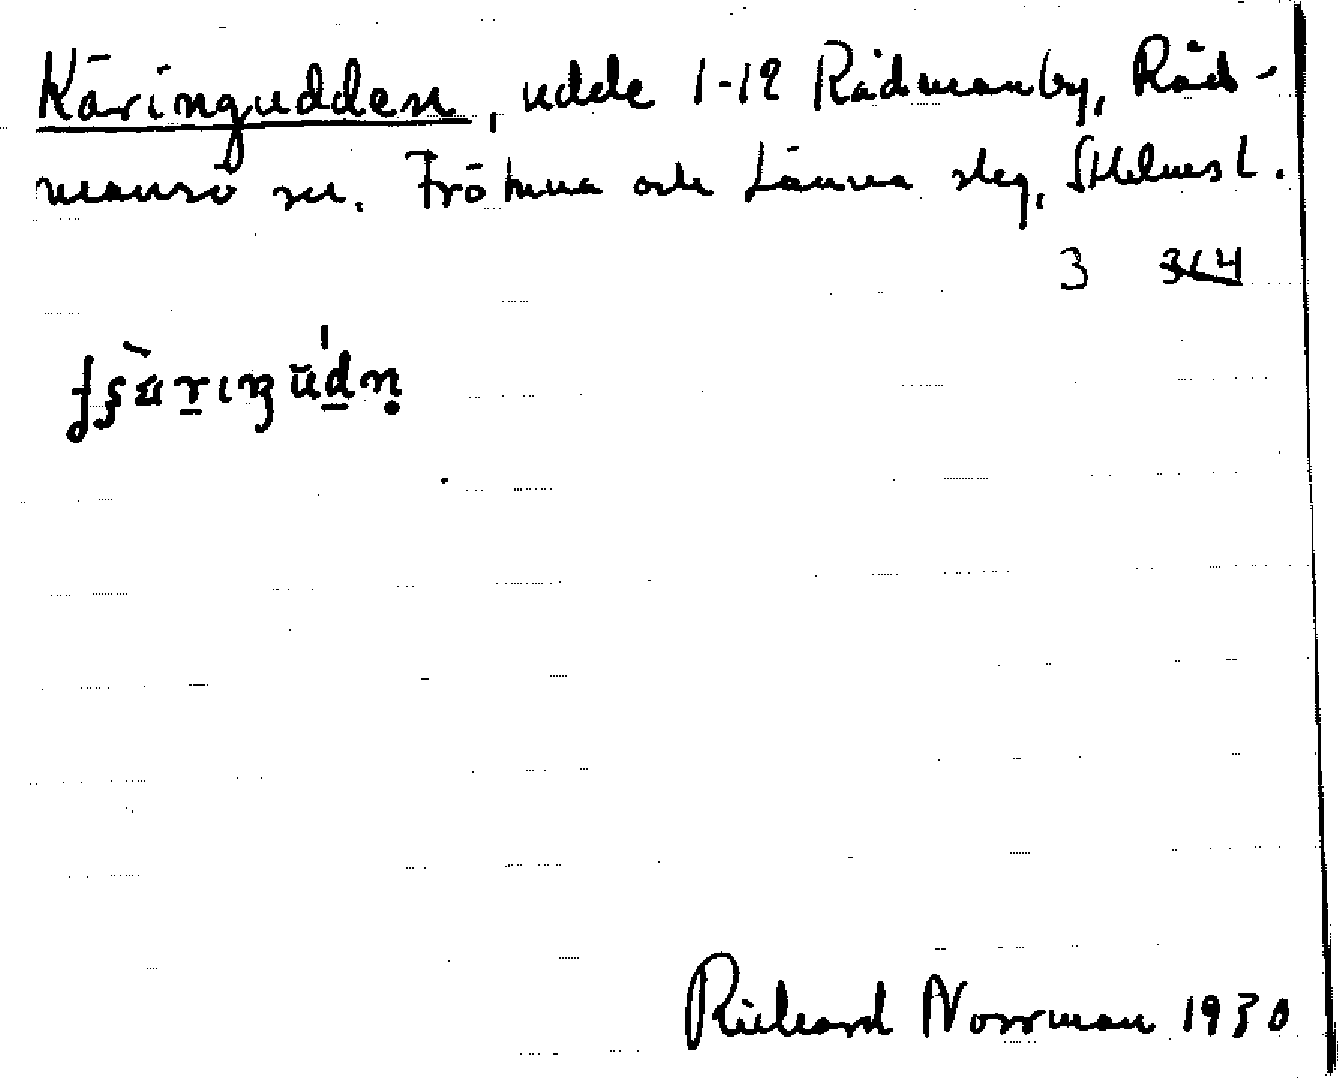 Käringudden, udde 1-12 Rådmanby, Råd-
mansö sn. Frötuna och Länna slg, Sthlms l.
3 364
Richard Norrman 1930